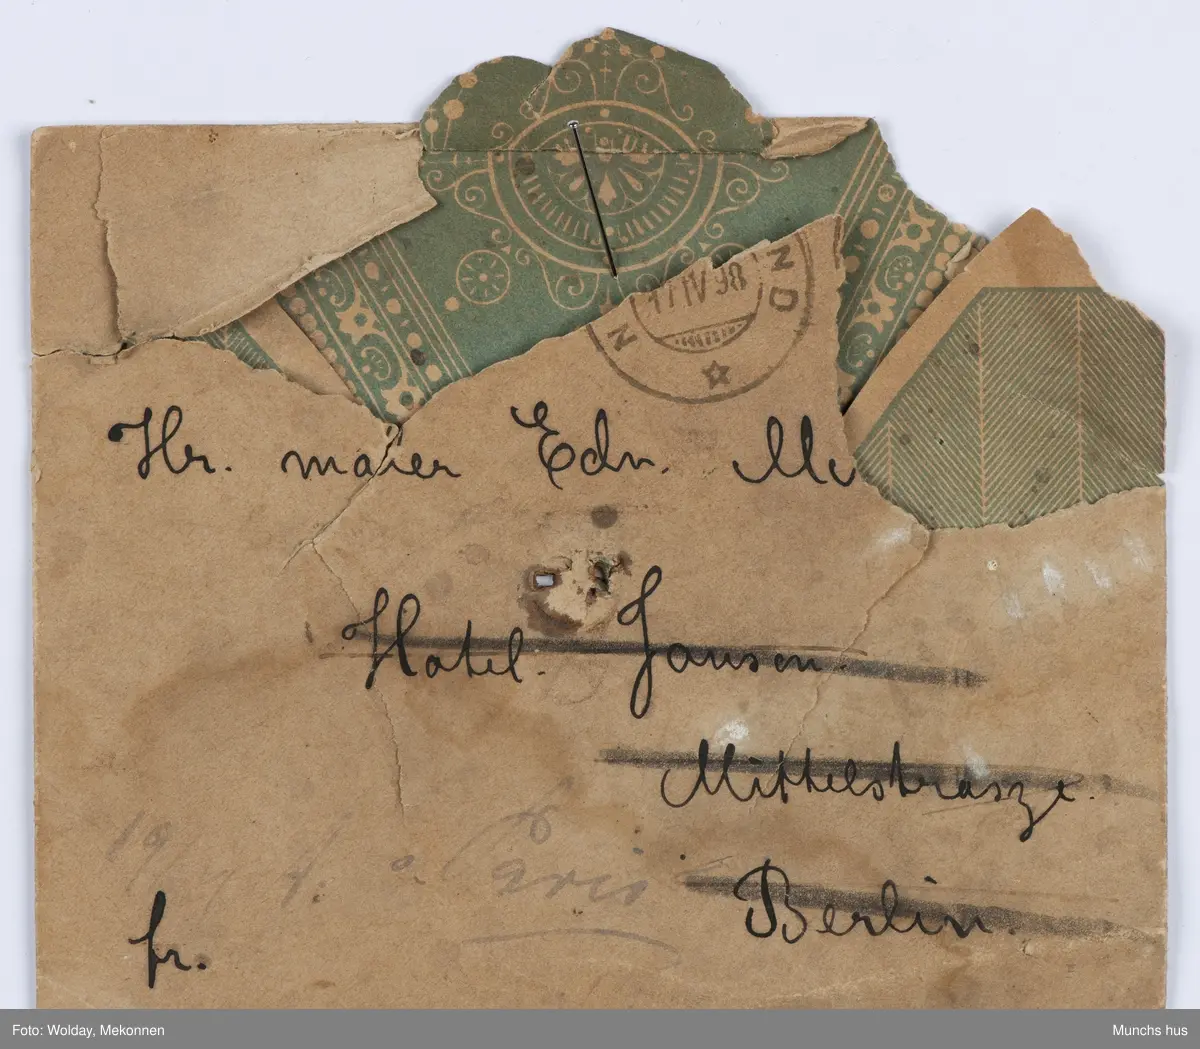 N 17 IV 98 ND
Hr. maler Edn. Mu
Hotel. Jansen.
Mittelstrasze.
Berlin.
Paris
fr.
Foto: Wolday, Mekonnen
Munchs hus